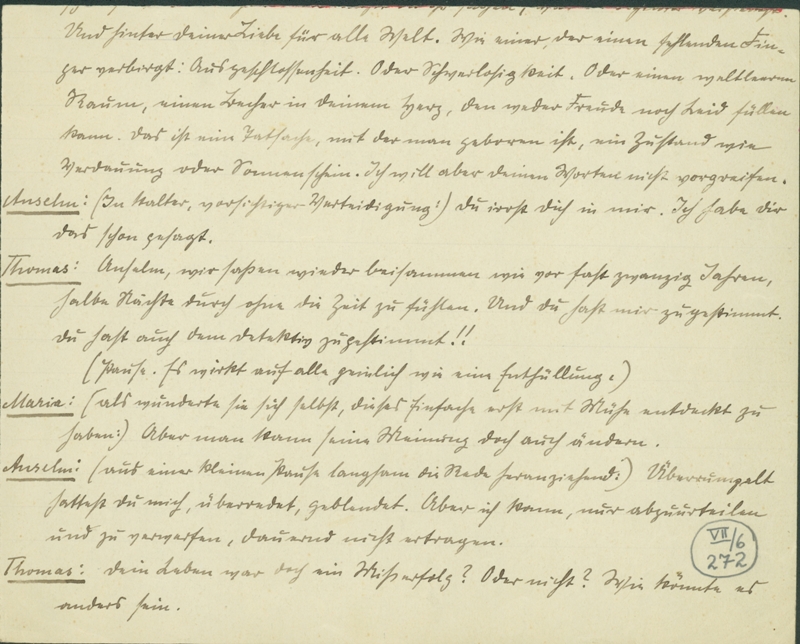 Und hinter deiner Liebe für alle Welt. Wie einer, der einen fehlenden Fin-
ger verbirgt: Ausgeschlossenheit. Oder Schwerlosigkeit. Oder einen weltleeren
Raum, einen Becher in deinem Herz, den weder Freude noch Leid füllen
kann. Das ist eine Tatsache, mit der man geboren ist, ein Zustand wie
Verdauung oder Sonnenschein. Ich will aber deinen Worten nicht vorgreifen.
Anselm: (In kalter, vorsichtiger Verteidigung:) Du irrst dich in mir. Ich habe dir
das schon gesagt.
Thomas: Anselm, wir saßen wieder beisammen wie vor fast zwanzig Jahren,
halbe Nächte durch ohne die Zeit zu fühlen. Und du hast mir zugestimmt.
Du hast auch dem Detektiv zugestimmt!!
(Pause. Es wirkt auf alle peinlich wie eine Enthüllung:)
Maria: (als wunderte sie sich selbst, dieses Einfache erst mit Mühe entdeckt zu
haben:) Aber man kann seine Meinung doch auch ändern.
Anselm: (aus einer kleinen Pause langsam die Rede heranziehend:) Überrumpelt
hattest du mich, überredet, geblendet. Aber ich kann, nur abzuurteilen
und zu verwerfen, dauernd nicht ertragen.
VII/6
272
Thomas: Dein Leben war doch ein Mißerfolg? Oder nicht? Wie könnte es
anders sein.